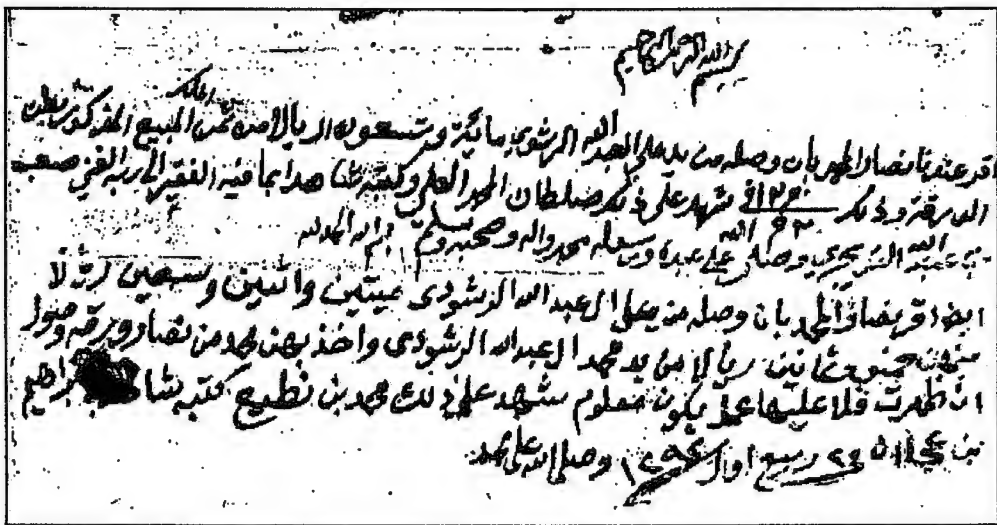 بسم الله الرحمن الرحيم
اقر عندنا نصار المهر بان وصله من يد علي العبد الله الرشودي مائة وتسعون اريالا من ثمن المبيع الملك المذكور
الورقة وذلك في شهد على ذلك صلطان المحمد العلي وكتبه شاهدا بما فيه الفقير الى ربه الغني صعب
بن عبد الله التويجري وصلى الله على عبده ورسوله محمد واله وصحبه وسلم الحمد لله
ايضا اقر نصار المهر بان وصله من يد علي ال عبد الله الرشودي ميتين واثنين وسبعين ريالا
منهن خمس وثمانين ريالا من يد محمد ال عبد الله الرشودي واخذ بهن محمد من نصار ورقه وصول
ان ظهرت فلا عليها عمل يكون معلوم شهد على ذلك محمد بن فطيح كتبه شاهد ابراهيم
بن ربيع اول وصلى الله على محمد